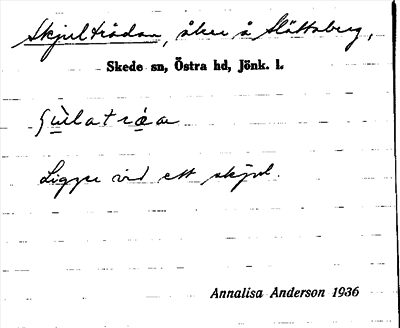 Skjulträdan, åker å Slättaberg,
Skede sn, Östra hd, Jönk. l.
Ligger vid ett skjul.
Annalisa Anderson 1936